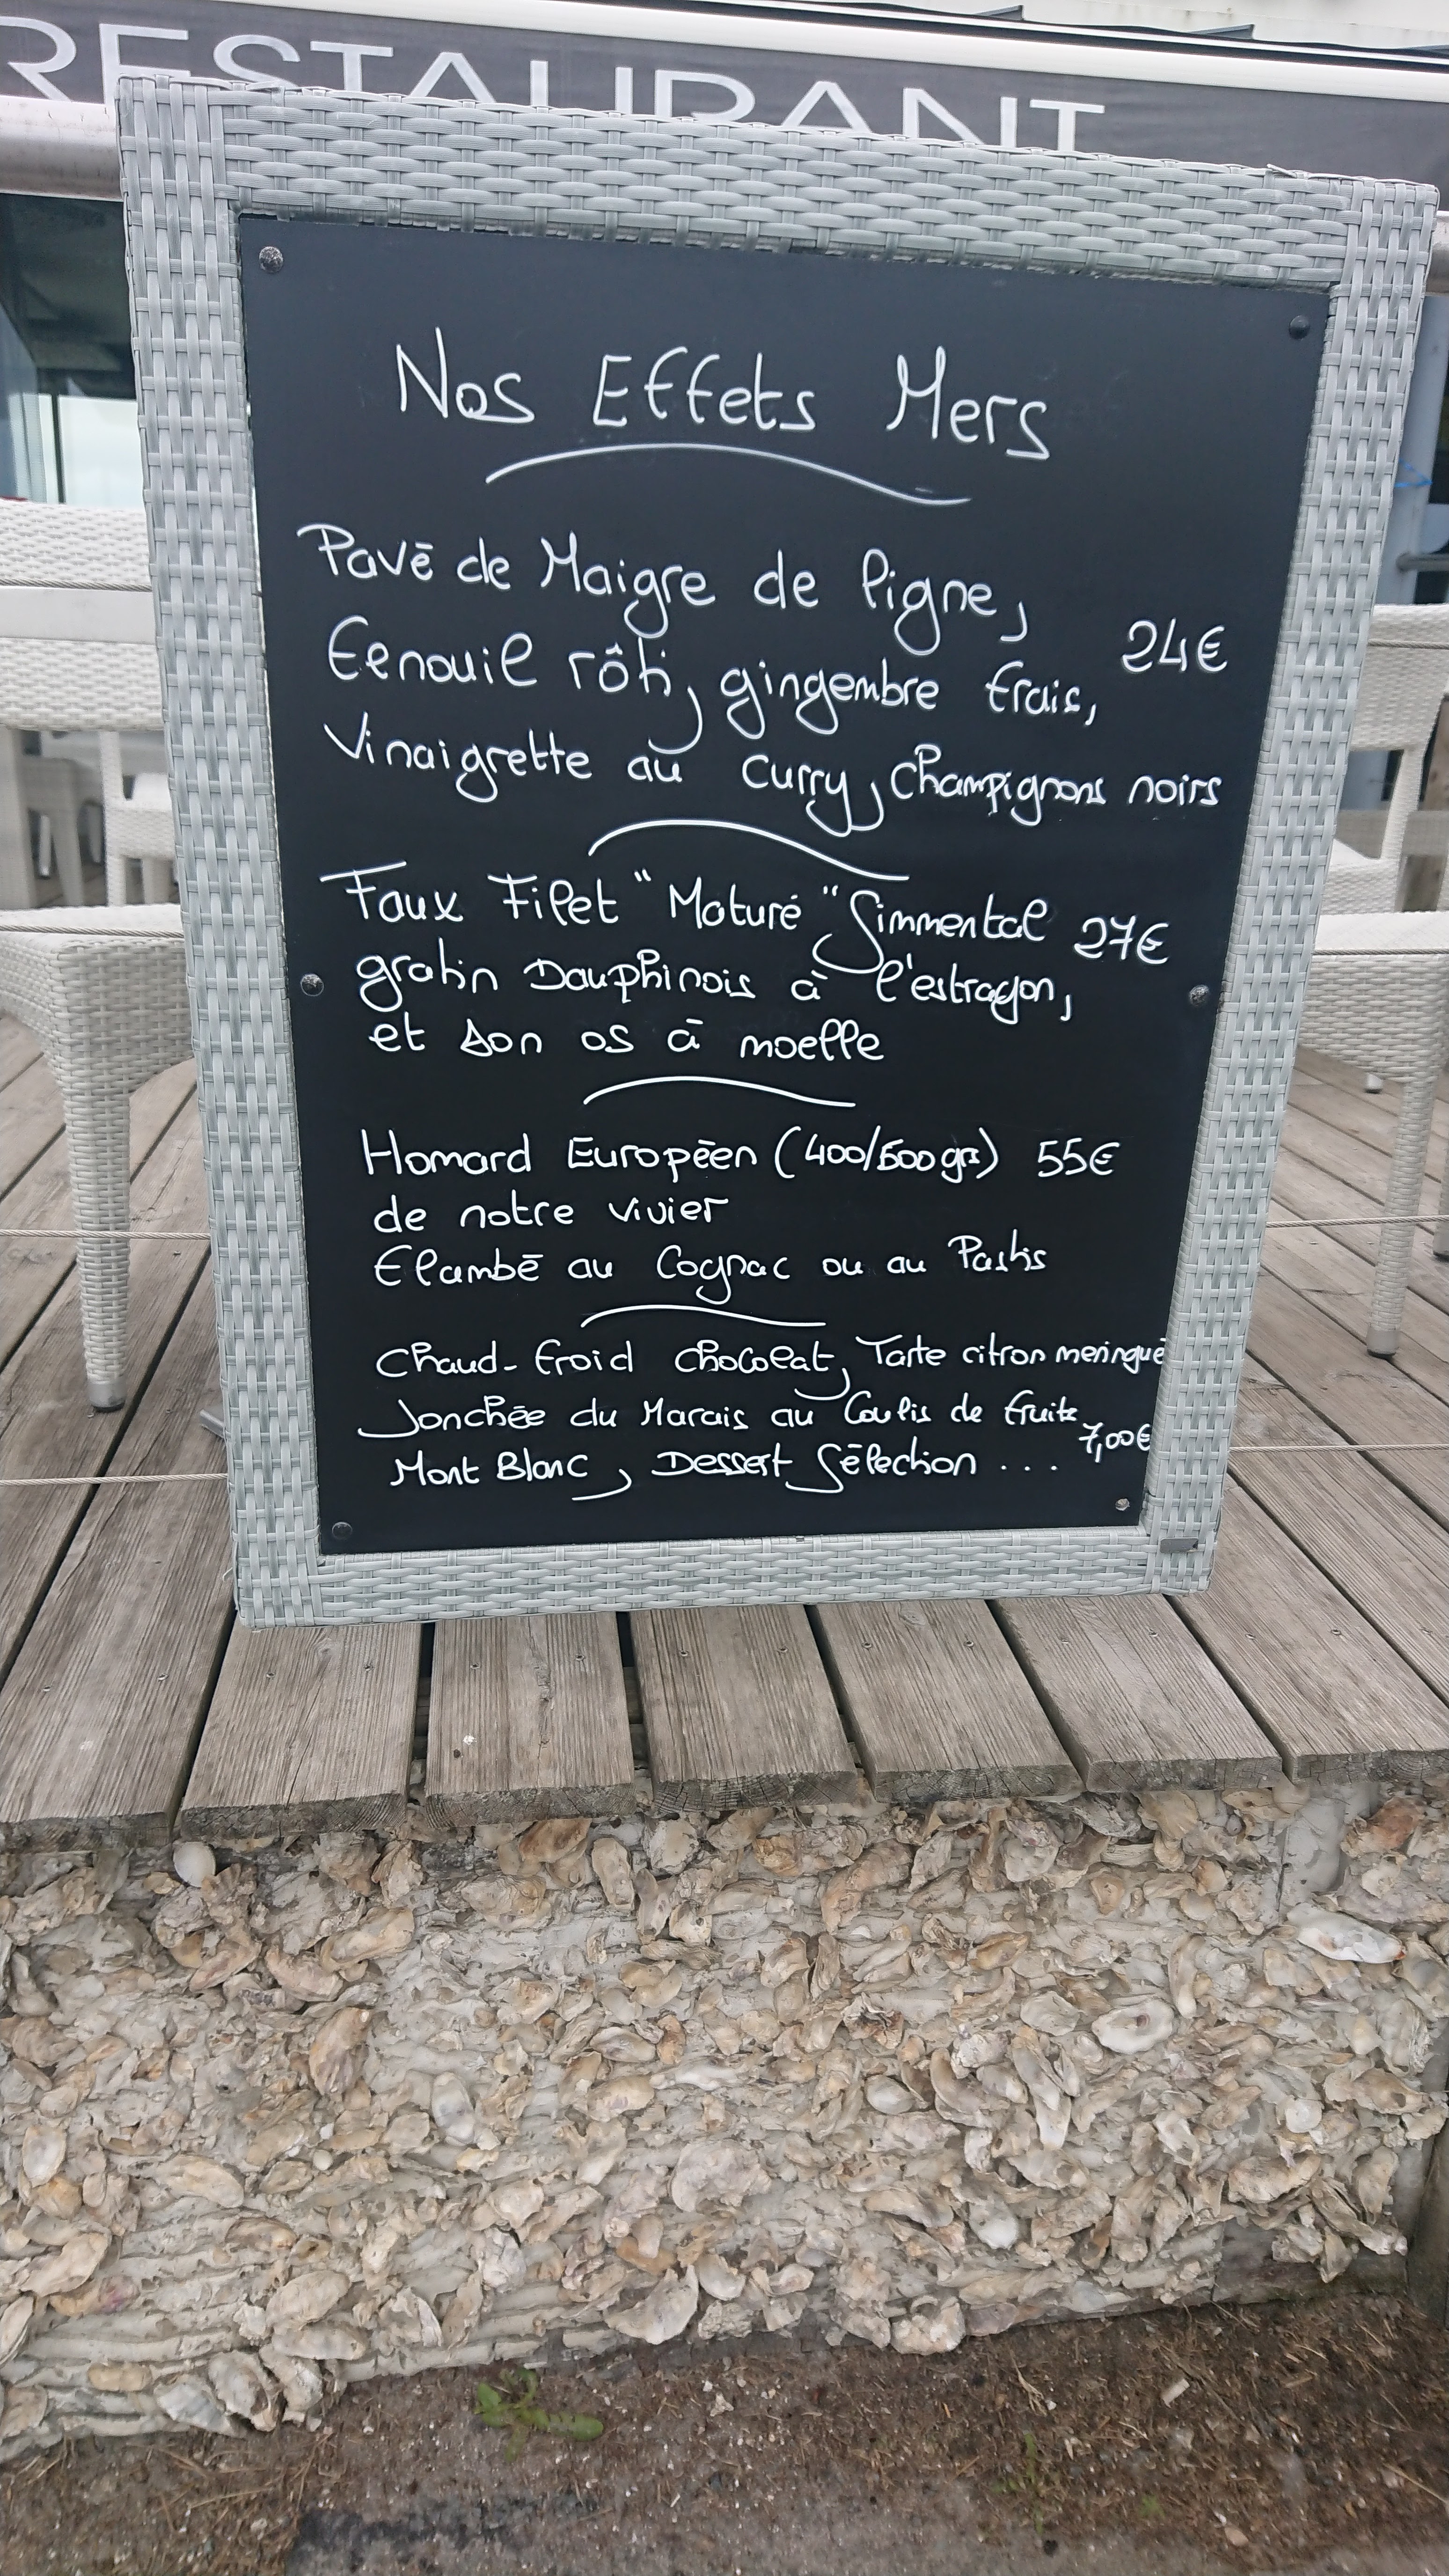 RESTAURANT
Nos Effets Mers
Pavé de Maigre de ligne,
Fenouil rôti, gingembre frais, 24€
Vinaigrette au curry, champignons noirs
Faux Filet "Maturé" Simmental 27€
gratin Dauphinois à l'estragon,
et son os à moelle
Homard Européen (400/500grs) 55€
de notre vivier
Flambé au Cognac ou au Pastis
Chaud-froid chocolat, Tarte citron meringué
Jonchée du Marais au Coulis de fruits
7,00€
Mont Blanc, Dessert Sélection ...